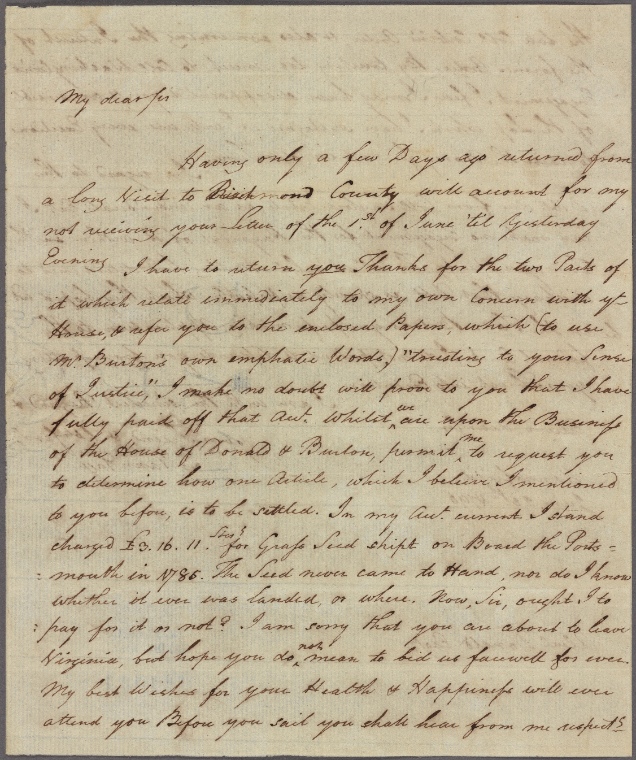 My dear Sir
Having only a few Days ago returned from
a long Visit to Richmond County will account for my
not receiving your Letter of the 1.st of June 'til Yesterday
Evening I have to return you Thanks for the two Parts of
it which relate immediately to my own Concern with yr
House, & refer you to the enclosed Papers, which (to use
Mr. Burton's own emphatic Words,) "trusting to your Sense
of Justice," I make no doubt will prove to you that I have
fully paid off that Acct. Whilst we are upon the Business
of the House of Donald & Burton, permit me to request you
to determine how one Article, which I believe I mentioned
to you before, is to be settled. In my Acct. current I stand
charged £3. 16. 11. for Grass Seed shipt on Board the Ports=
=mouth in 1785. The Seed never came to Hand, nor do I know
whether it ever was landed, or where. Now, Sir, ought I to
pay for it or not? I am sorry that you are about to leave
Virginia, but hope you do not mean to bid us farewell for ever.
My best Wishes for your Health & Happiness will ever
attend you Before you sail you shall hear from me respectg